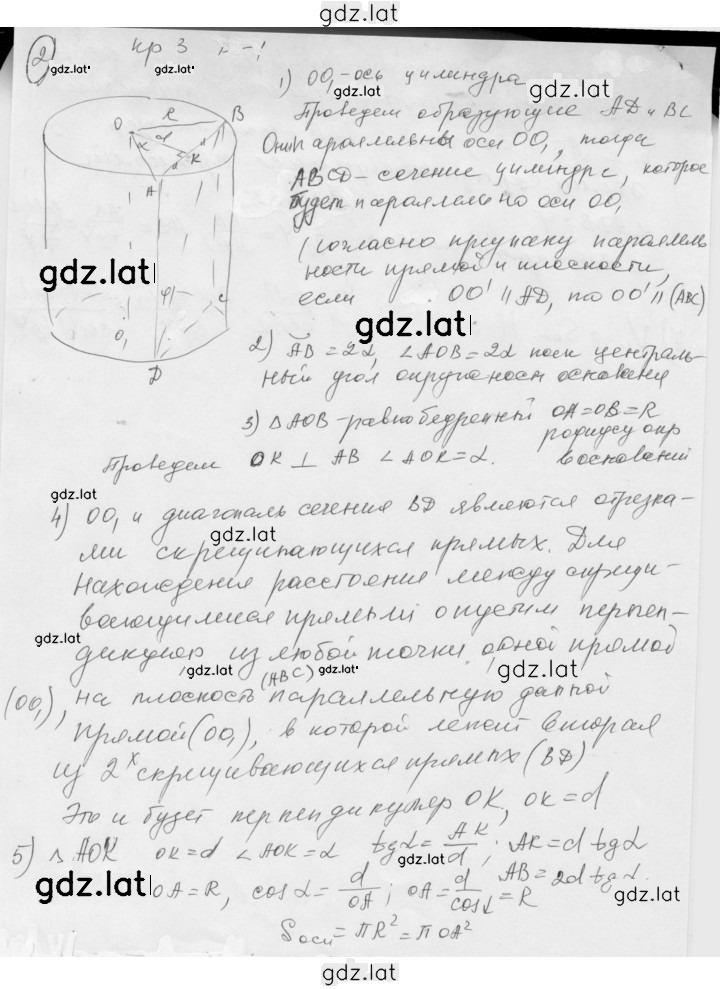 gdz.lat
2 кр 3 в-1
gdz.lat
1) OO₁-ось цилиндра
gdz.lat
gdz.lat
Проведем образующие AD и BC
Они параллельны оси OO₁, тогда
ABCD - сечение цилиндра, которое
будет параллельно оси OO₁
(согласно признаку параллель-
ности прямой и плоскости,
если OO' || AD, то OO' || (ABC)
gdz.lat
gdz.lat
O R B
α K
A
φ C
O₁
D
2) AB = 2α, ∠AOB = 2α как централь-
ный угол окружности основания
3) △AOB - равнобедренный OA=OB=R
радиусу окр
Проведем OK ⊥ AB ∠AOK = α. в основании
gdz.lat
4) OO₁ и диагональ сечения BD являются отрезка-
gdz.lat
ми скрещивающихся прямых. Для
нахождения расстояние между скрещи-
вающимися прямыми опустим перпен-
gdz.lat
дикуляр из любой точки одной прямой
gdz.lat gdz.lat gdz.lat
(OO₁), на плоскость (ABC) параллельную данной
прямой (OO₁), в которой лежит вторая
из 2х скрещивающихся прямых (BD)
Это и будет перпендикуляр OK, OK = d
5) △ AOK OK = d ∠AOK = α tgα = AK/d; AK = d tgα
gdz.lat
gdz.lat
OA = R, cos α = d/OA; OA = d/cos α = R AB = 2d tgα.
Sосн = πR² = π OA²
gdz.lat